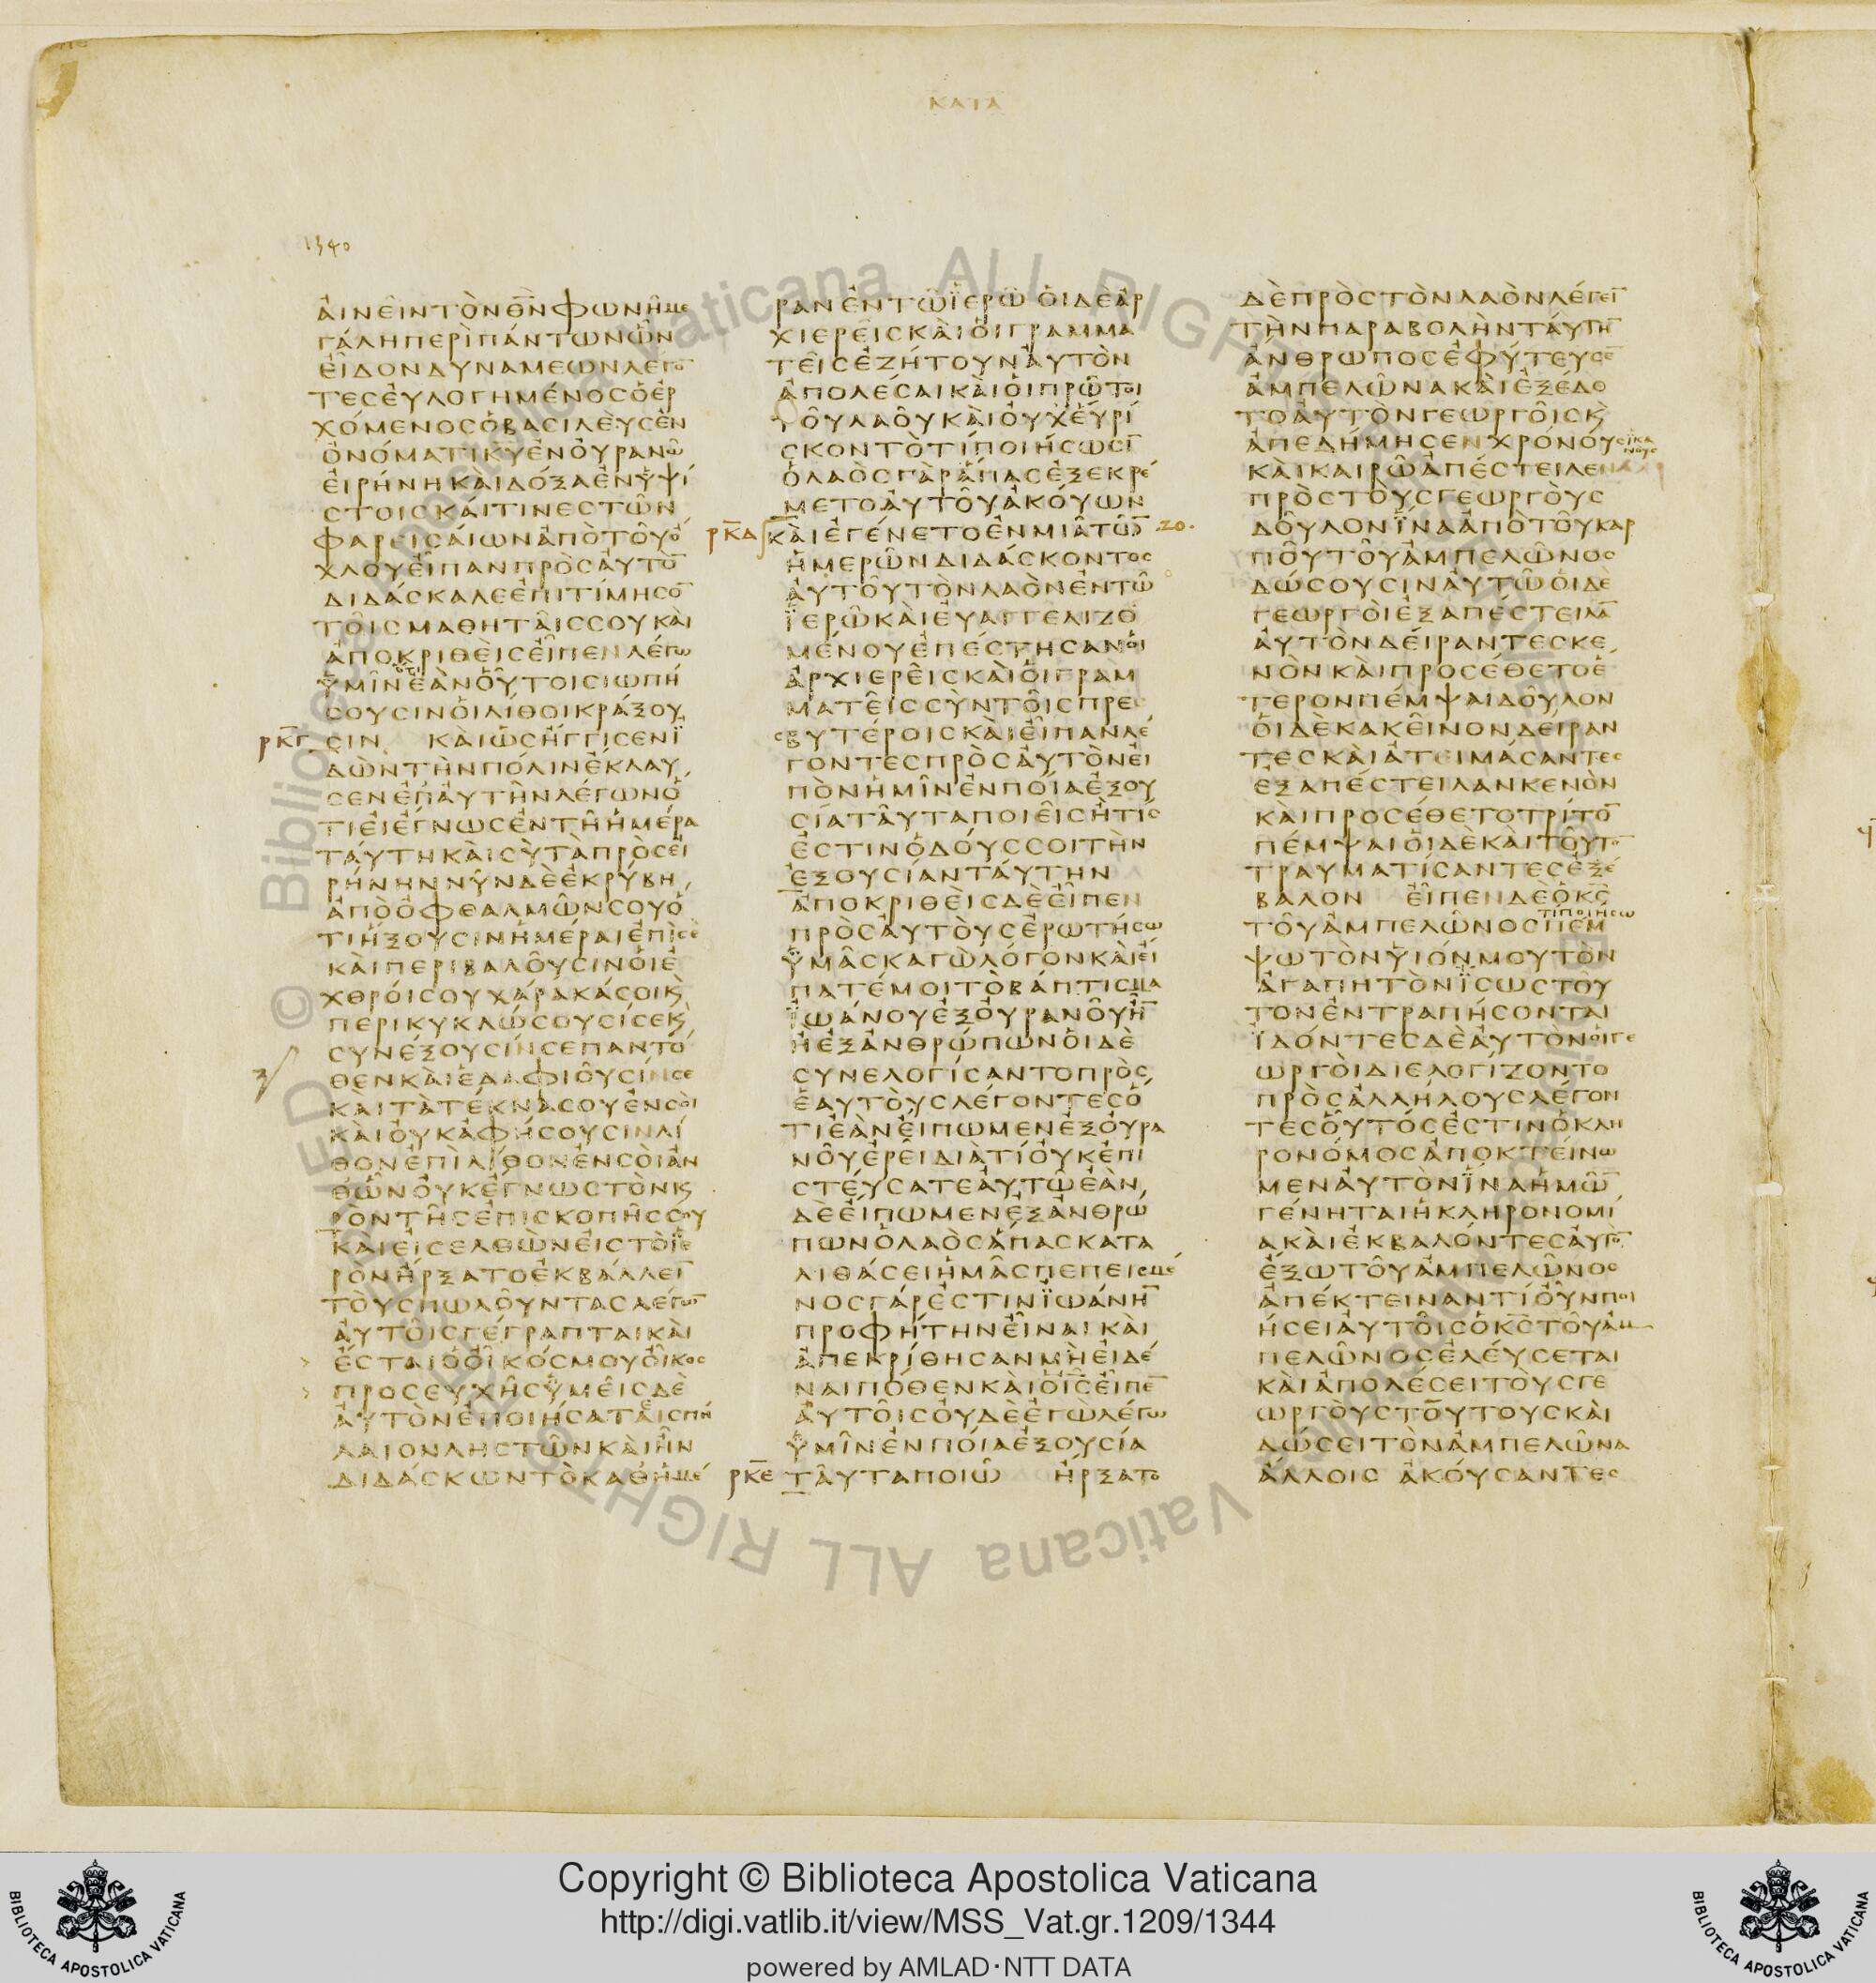 ΚΑΤΑ
1340
ΑΙΝΕΙΝΤΟΝΘ̅Ν̅ΦΩΝΗΜΕ
ΓΑΛΗΠΕΡΙΠΑΝΤΩΝΩΝ
ΕΙΔΟΝΔΥΝΑΜΕΩΝΛΕΓΟ̅
ΤΕСΕΥΛΟΓΗΜΕΝΟСΟΕΡ
ΧΟΜΕΝΟСΟΒΑСΙΛΕΥСΕΝ
ΟΝΟΜΑΤΙΚ̅Υ̅ΕΝΟΥΡΑΝΩ
ΕΙΡΗΝΗΚΑΙΔΟΞΑΕΝΥΨΙ
СΤΟΙСΚΑΙΤΙΝΕСΤΩΝ
ΦΑΡΕΙСΑΙΩΝΑΠΟΤΟΥΟ
ΧΛΟΥΕΙΠΑΝΠΡΟСΑΥΤΟ̅
ΔΙΔΑСΚΑΛΕΕΠΙΤΙΜΗСΟ̅
ΤΟΙСΜΑΘΗΤΑΙССΟΥΚΑΙ
ΑΠΟΚΡΙΘΕΙСΕΙΠΕΝΛΕΓΩ
ΟΤΙ
ΥΜΙΝΕΑΝΟΥΤΟΙСΙΩΠΗ
СΟΥСΙΝΟΙΛΙΘΟΙΚΡΑΞΟΥ
ΡΚ̅Γ СΙΝ ΚΑΙΩСΗΓΓΙСΕΝΪ
ΔΩΝΤΗΝΠΟΛΙΝΕΚΛΑΥ
СΕΝΕΠΑΥΤΗΝΛΕΓΩΝΟ
ΤΙΕΙΕΓΝΩСΕΝΤΗΗΜΕΡΑ
ΤΑΥΤΗΚΑΙСΥΤΑΠΡΟСΕΙ
ΡΗΝΗΝΝΥΝΔΕΕΚΡΥΒΗ
ΑΠΟΟΦΘΑΛΜΩΝСΟΥΟ
ΤΙΗΞΟΥСΙΝΗΜΕΡΑΙΕΠΙСΕ
ΚΑΙΠΕΡΙΒΑΛΟΥСΙΝΟΙΕ
ΧΘΡΟΙСΟΥΧΑΡΑΚΑСΟΙΚϗ
ΠΕΡΙΚΥΚΛΩСΟΥСΙСΕΚϗ
СΥΝΕΞΟΥСΙΝСΕΠΑΝΤΟ
ΘΕΝΚΑΙΕΔΑΦΙΟΥСΙΝСΕ
ΚΑΙΤΑΤΕΚΝΑСΟΥΕΝСΟΙ
ΚΑΙΟΥΚΑΦΗСΟΥСΙΝΛΙ
ΘΟΝΕΠΙΛΙΘΟΝΕΝСΟΙΑΝ
ΘΩΝΟΥΚΕΓΝΩСΤΟΝΚΑΙ
ΡΟΝΤΗСΕΠΙСΚΟΠΗССΟΥ
ΚΑΙΕΙСΕΛΘΩΝΕΙСΤΟΪΕ
ΡΟΝΗΡΞΑΤΟΕΚΒΑΛΛΕΙ̅
ΤΟΥСΠΩΛΟΥΝΤΑСΛΕΓΩ̅
ΑΥΤΟΙСΓΕΓΡΑΠΤΑΙΚΑΙ
> ΕСΤΑΙΟΟΙΚΟСΜΟΥΟΙΚΟС
> ΠΡΟСΕΥΧΗСΥΜΕΙСΔΕ
ΑΥΤΟΝΕΠΟΙΗСΑΤΑΙСΠΗ
ΛΑΙΟΝΛΗСΤΩΝΚΑΙΗΝ
ΔΙΔΑСΚΩΝΤΟΚΑΘΗΜΕ
ΡΑΝΕΝΤΩΪΕΡΩΟΙΔΕΑΡ
ΧΙΕΡΕΙСΚΑΙΟΙΓΡΑΜΜΑ
ΤΕΙСΕΖΗΤΟΥΝΑΥΤΟΝ
ΑΠΟΛΕСΑΙΚΑΙΟΙΠΡΩΤΟΙ
ΤΟΥΛΑΟΥΚΑΙΟΥΧΕΥΡΙ
СΚΟΝΤΟΤΙΠΟΙΗСΩСΙ̅
ΟΛΑΟСΓΑΡΑΠΑСΕΞΕΚΡΕ
ΜΕΤΟΑΥΤΟΥΑΚΟΥΩΝ
ΡΚ̅Δ ΚΑΙΕΓΕΝΕΤΟΕΝΜΙΑΤΩ̅
ΗΜΕΡΩΝΔΙΔΑСΚΟΝΤΟС
ΑΥΤΟΥΤΟΝΛΑΟΝΕΝΤΩ
ΪΕΡΩΚΑΙΕΥΑΓΓΕΛΙΖΟ
ΜΕΝΟΥΕΠΕСΤΗСΑΝΟΙ
ΑΡΧΙΕΡΕΙСΚΑΙΟΙΓΡΑΜ
ΜΑΤΕΙССΥΝΤΟΙСΠΡΕ
СΒΥΤΕΡΟΙСΚΑΙΕΙΠΑΝΛΕ
ΓΟΝΤΕСΠΡΟСΑΥΤΟΝΕΙ
ΠΟΝΗΜΙΝΕΝΠΟΙΑΕΞΟΥ
СΙΑΤΑΥΤΑΠΟΙΕΙСΗΤΙС
ΕСΤΙΝΟΔΟΥССΟΙΤΗΝ
ΕΞΟΥСΙΑΝΤΑΥΤΗΝ
ΑΠΟΚΡΙΘΕΙСΔΕΕΙΠΕΝ
ΠΡΟСΑΥΤΟΥСΕΡΩΤΗСΩ
ΥΜΑСΚΑΓΩΛΟΓΟΝΚΑΙΕΙ
ΠΑΤΕΜΟΙΤΟΒΑΠΤΙСΜΑ
ΪΩΑΝΟΥΕΞΟΥΡΑΝΟΥΗ̅
ΗΕΞΑΝΘΡΩΠΩΝΟΙΔΕ
СΥΝΕΛΟΓΙСΑΝΤΟΠΡΟС
ΕΑΥΤΟΥСΛΕΓΟΝΤΕСΟ
ΤΙΕΑΝΕΙΠΩΜΕΝΕΞΟΥΡΑ
ΝΟΥΕΡΕΙΔΙΑΤΙΟΥΚΕΠΙ
СΤΕΥСΑΤΕΑΥΤΩΕΑΝ
ΔΕΕΙΠΩΜΕΝΕΞΑΝΘΡΩ
ΠΩΝΟΛΑΟСΑΠΑСΚΑΤΑ
ΛΙΘΑСΕΙΗΜΑСΠΕΠΕΙСΜΕ
ΝΟСΓΑΡΕСΤΙΝΪΩΑΝΗ̅
ΠΡΟΦΗΤΗΝΕΙΝΑΙΚΑΙ
ΑΠΕΚΡΙΘΗСΑΝΜΗΕΙΔΕ
ΝΑΙΠΟΘΕΝΚΑΙΟΙ̅С̅ΕΙΠΕ̅
ΑΥΤΟΙСΟΥΔΕΕΓΩΛΕΓΩ
ΥΜΙΝΕΝΠΟΙΑΕΞΟΥСΙΑ
ΡΚ̅Ε ΤΑΥΤΑΠΟΙΩ ΗΡΞΑΤΟ
ΔΕΠΡΟСΤΟΝΛΑΟΝΛΕΓΕΙ̅
ΤΗΝΠΑΡΑΒΟΛΗΝΤΑΥΤΗ̅
ΑΝΘΡΩΠΟСΕΦΥΤΕΥСΕ̅
ΑΜΠΕΛΩΝΑΚΑΙΕΞΕΔΟ
ΤΟΑΥΤΟΝΓΕΩΡΓΟΙСΚϗ
ΑΠΕΔΗΜΗСΕΝΧΡΟΝΟΥС ΙΚΑΝΟΥС
ΚΑΙΚΑΙΡΩΑΠΕСΤΕΙΛΕΝ
ΠΡΟСΤΟΥСΓΕΩΡΓΟΥС
ΔΟΥΛΟΝΪΝΑΑΠΟΤΟΥΚΑΡ
ΠΟΥΤΟΥΑΜΠΕΛΩΝΟС
ΔΩСΟΥСΙΝΑΥΤΩΟΙΔΕ
ΓΕΩΡΓΟΙΕΞΑΠΕСΤΕΙΛΑ̅
ΑΥΤΟΝΔΕΙΡΑΝΤΕСΚΕ
ΝΟΝΚΑΙΠΡΟСΕΘΕΤΟΕ
ΤΕΡΟΝΠΕΜΨΑΙΔΟΥΛΟΝ
ΟΙΔΕΚΑΚΕΙΝΟΝΔΕΙΡΑΝ
ΤΕСΚΑΙΑΤΕΙΜΑСΑΝΤΕС
ΕΞΑΠΕСΤΕΙΛΑΝΚΕΝΟΝ
ΚΑΙΠΡΟСΕΘΕΤΟΤΡΙΤΟ̅
ΠΕΜΨΑΙΟΙΔΕΚΑΙΤΟΥΤΟ̅
ΤΡΑΥΜΑΤΙСΑΝΤΕСΕΞΕ
ΒΑΛΟΝ ΕΙΠΕΝΔΕΟΚ̅С̅
ΤΙΠΟΙΗСΩ
ΤΟΥΑΜΠΕΛΩΝΟСΠΕΜ
ΨΩΤΟΝΥΙΟΝΜΟΥΤΟΝ
ΑΓΑΠΗΤΟΝΪСΩСΤΟΥ
ΤΟΝΕΝΤΡΑΠΗСΟΝΤΑΙ
ΪΔΟΝΤΕСΔΕΑΥΤΟΝΟΙΓΕ
ΩΡΓΟΙΔΙΕΛΟΓΙΖΟΝΤΟ
ΠΡΟСΑΛΛΗΛΟΥСΛΕΓΟΝ
ΤΕСΟΥΤΟСΕСΤΙΝΟΚΛΗ
ΡΟΝΟΜΟСΑΠΟΚΤΕΙΝΩ
ΜΕΝΑΥΤΟΝΪΝΑΗΜΩ̅
ΓΕΝΗΤΑΙΗΚΛΗΡΟΝΟΜΙ
ΑΚΑΙΕΚΒΑΛΟΝΤΕСΑΥΤΟ̅
ΕΞΩΤΟΥΑΜΠΕΛΩΝΟС
ΑΠΕΚΤΕΙΝΑΝΤΙΟΥΝΠΟΙ
ΗСΕΙΑΥΤΟΙСΟΚ̅С̅ΤΟΥΑΜ
ΠΕΛΩΝΟСΕΛΕΥСΕΤΑΙ
ΚΑΙΑΠΟΛΕСΕΙΤΟΥСΓΕ
ΩΡΓΟΥСΤΟΥΤΟΥСΚΑΙ
ΔΩСΕΙΤΟΝΑΜΠΕΛΩΝΑ
ΑΛΛΟΙС ΑΚΟΥСΑΝΤΕС
Copyright © Biblioteca Apostolica Vaticana
http://digi.vatlib.it/view/MSS_Vat.gr.1209/1344
powered by AMLAD·NTT DATA
BIBLIOTECA APOSTOLICA VATICANA
BIBLIOTECA APOSTOLICA VATICANA